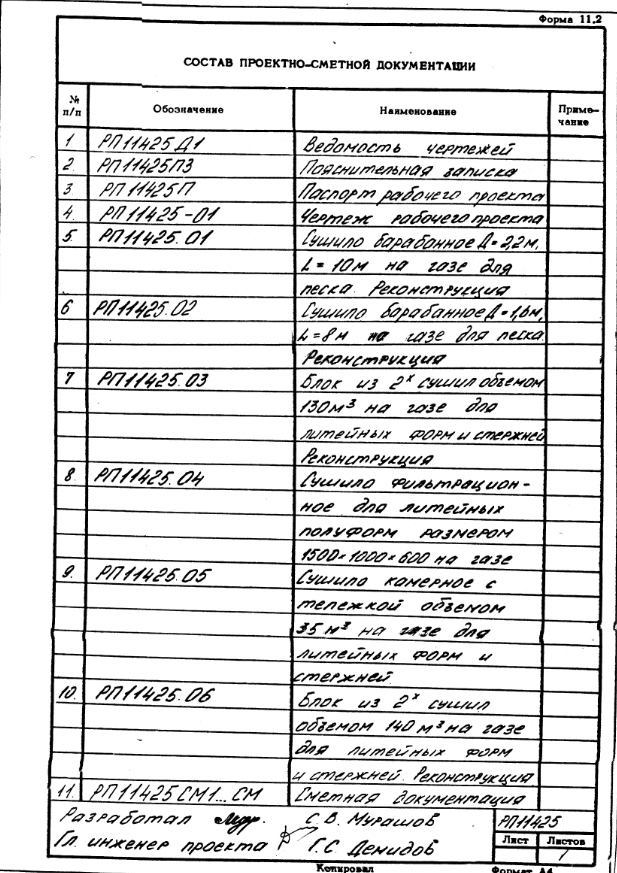 Форма 11.2
СОСТАВ ПРОЕКТНО-СМЕТНОЙ ДОКУМЕНТАЦИИ
№ п/п Обозначение Наименование Приме-чание
1 РП11425Д1 Ведомость чертежей
2. РП11425ПЗ Пояснительная записка
3. РП11425П Паспорт рабочего проекта
4. РП11425-01 Чертеж рабочего проекта
5. РП11425.01 Сушило барабанное Д=2,2м,
L=10м на газе для
песка. Реконструкция
6 РП11425.02 Сушило барабанное Д=1,6м,
L=8м на газе для песка.
Реконструкция
7 РП11425.03 Блок из 2х сушил объемом
130м³ на газе для
литейных форм и стержней
Реконструкция
8. РП11425.04 Сушило фильтрацион-
ное для литейных
полуформ размером
1500×1000×600 на газе
9. РП11425.05 Сушило камерное с
тележкой объемом
35 м³ на газе для
литейных форм и
стержней
10. РП11425.06 Блок из 2х сушил
объемом 140 м³ на газе
для литейных форм
и стержней. Реконструкция
11. РП11425СМ1...СМ Сметная документация
Разработал С.В. Мурашов РП11425
Гл. инженер проекта Г.С Демидов Лист Листов
1
Копировал Формат А4